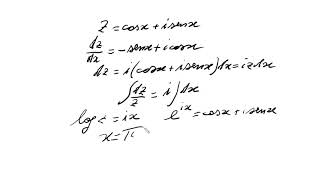 z = cosx + i senx
dz/dx = -senx + i cosx
dz = i(cosx + i senx)dx = iz dx
∫ dz/z = i ∫ dx
log z = ix e^ix = cosx + i senx
x = π